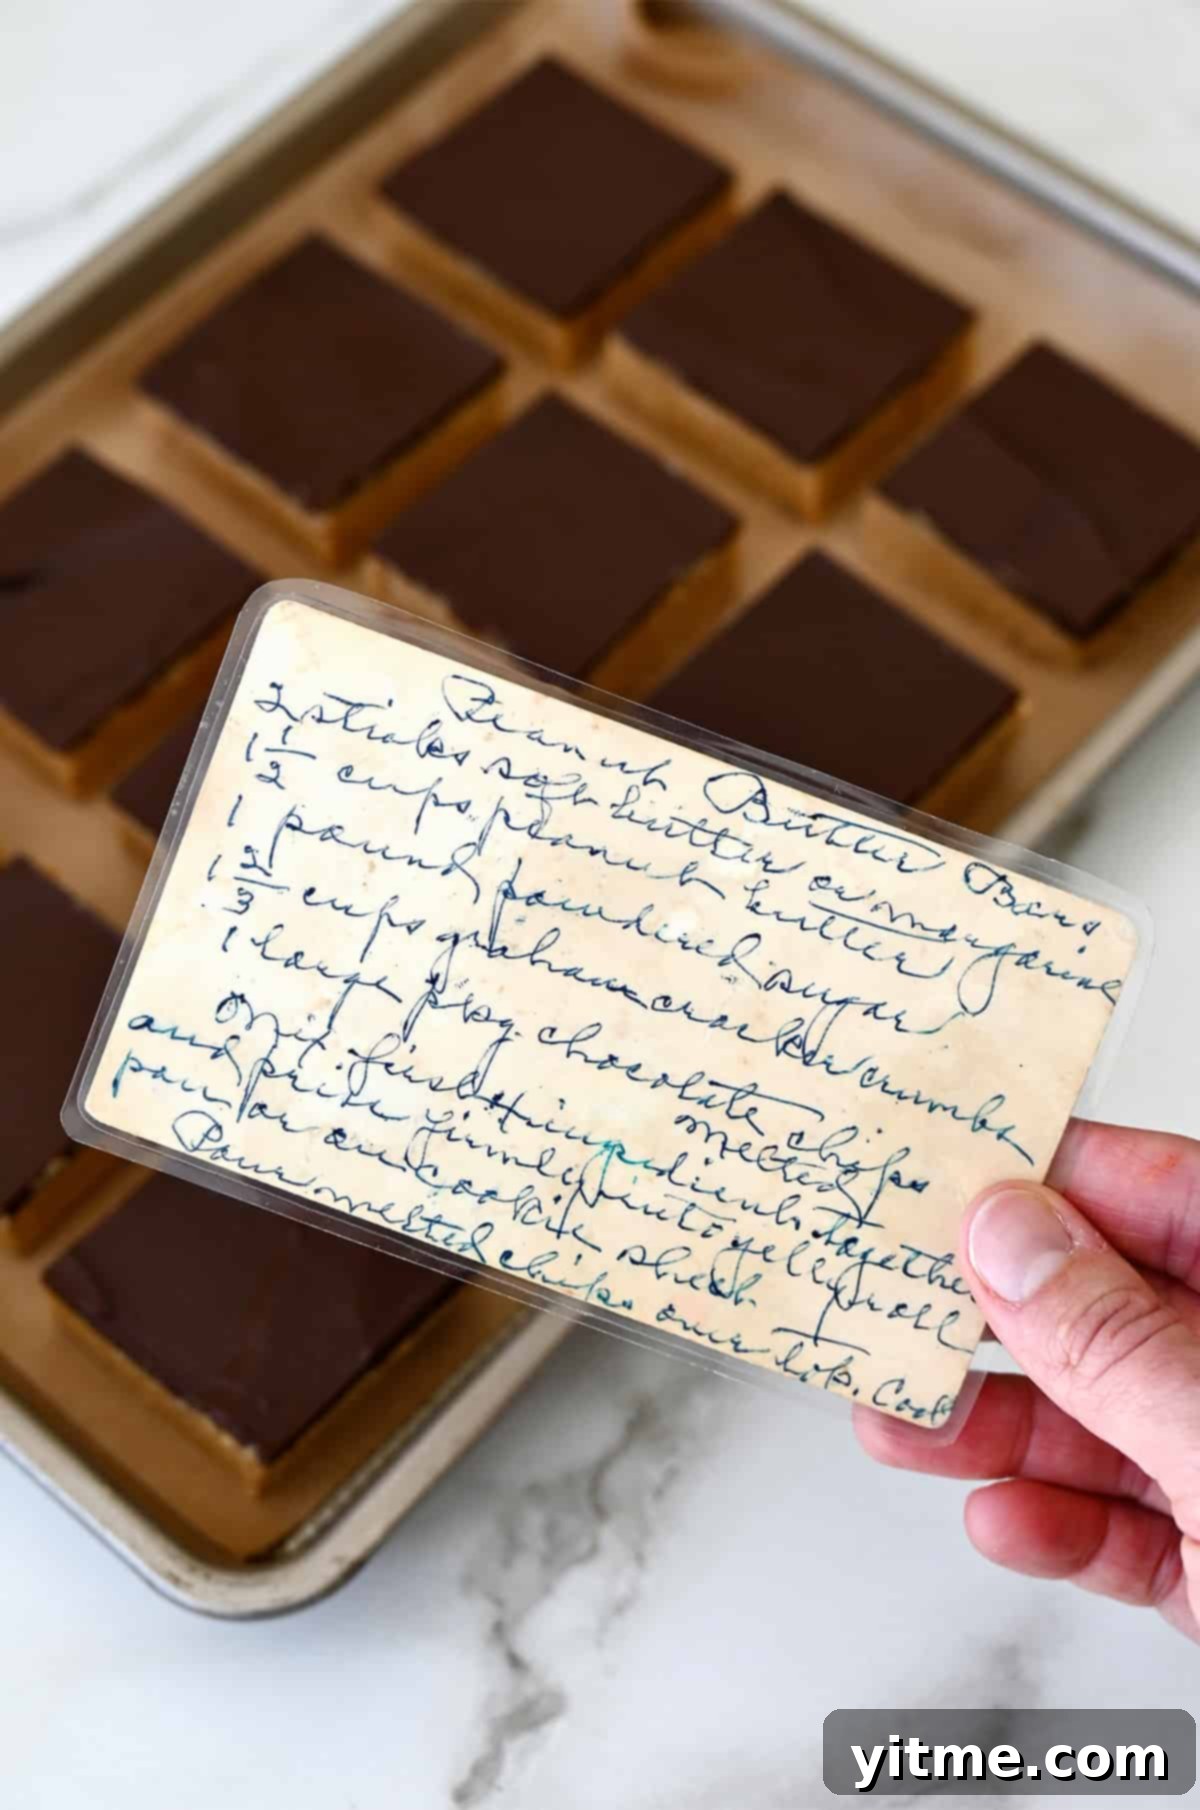 Peanut Butter Bars
2 sticks soft butter or margarine
1 1/2 cups peanut butter
1 pound powdered sugar
1 2/3 cups graham cracker crumbs
1 large pkg. chocolate chips
melted
Mix first ingredients together
and press firmly into jelly roll
pan or on cookie sheet.
Pour melted chips over top. Cool
yitme.com